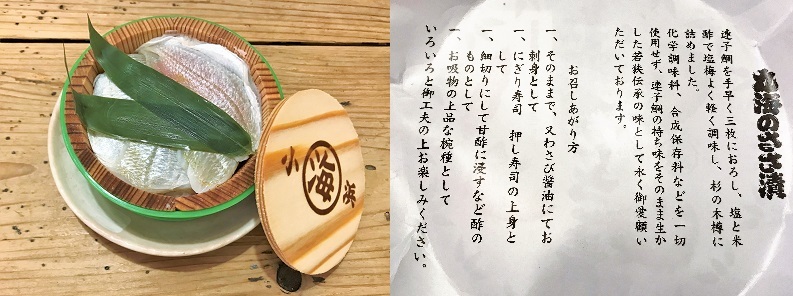 小
海
浜
丸海のささ漬
連子鯛を手早く三枚におろし、塩と米
酢で塩梅よく軽く調味し、杉の木樽に
詰めました。
化学調味料、合成保存料などを一切
使用せず、連子鯛の持ち味をそのまま生か
した若狭伝承の味として永く御愛顧い
ただいております。
お召しあがり方
一、そのままで、又わさび醤油にてお
刺身として
一、にぎり寿司、押し寿司の上身と
して
一、細切りにして甘酢に浸すなど酢の
ものとして
一、お吸物の上品な椀種として
いろいろと御工夫の上お楽しみください。